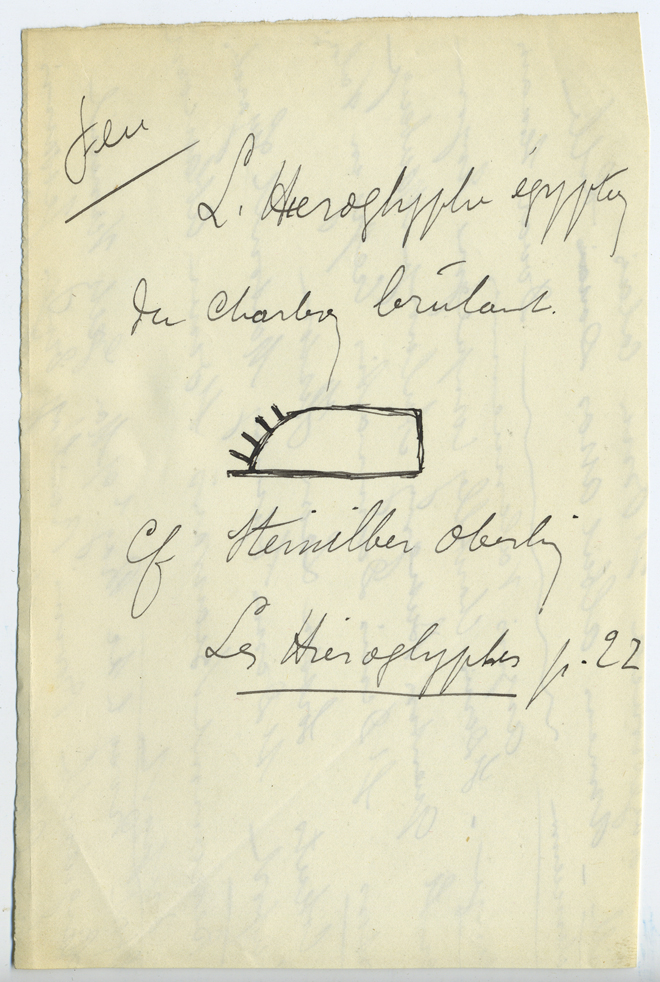 Feu
L. Hieroglyphe égyptien
du charbon brûlant.
Cf Steinilber Oberlin
Les Hiéroglyphes p. 22